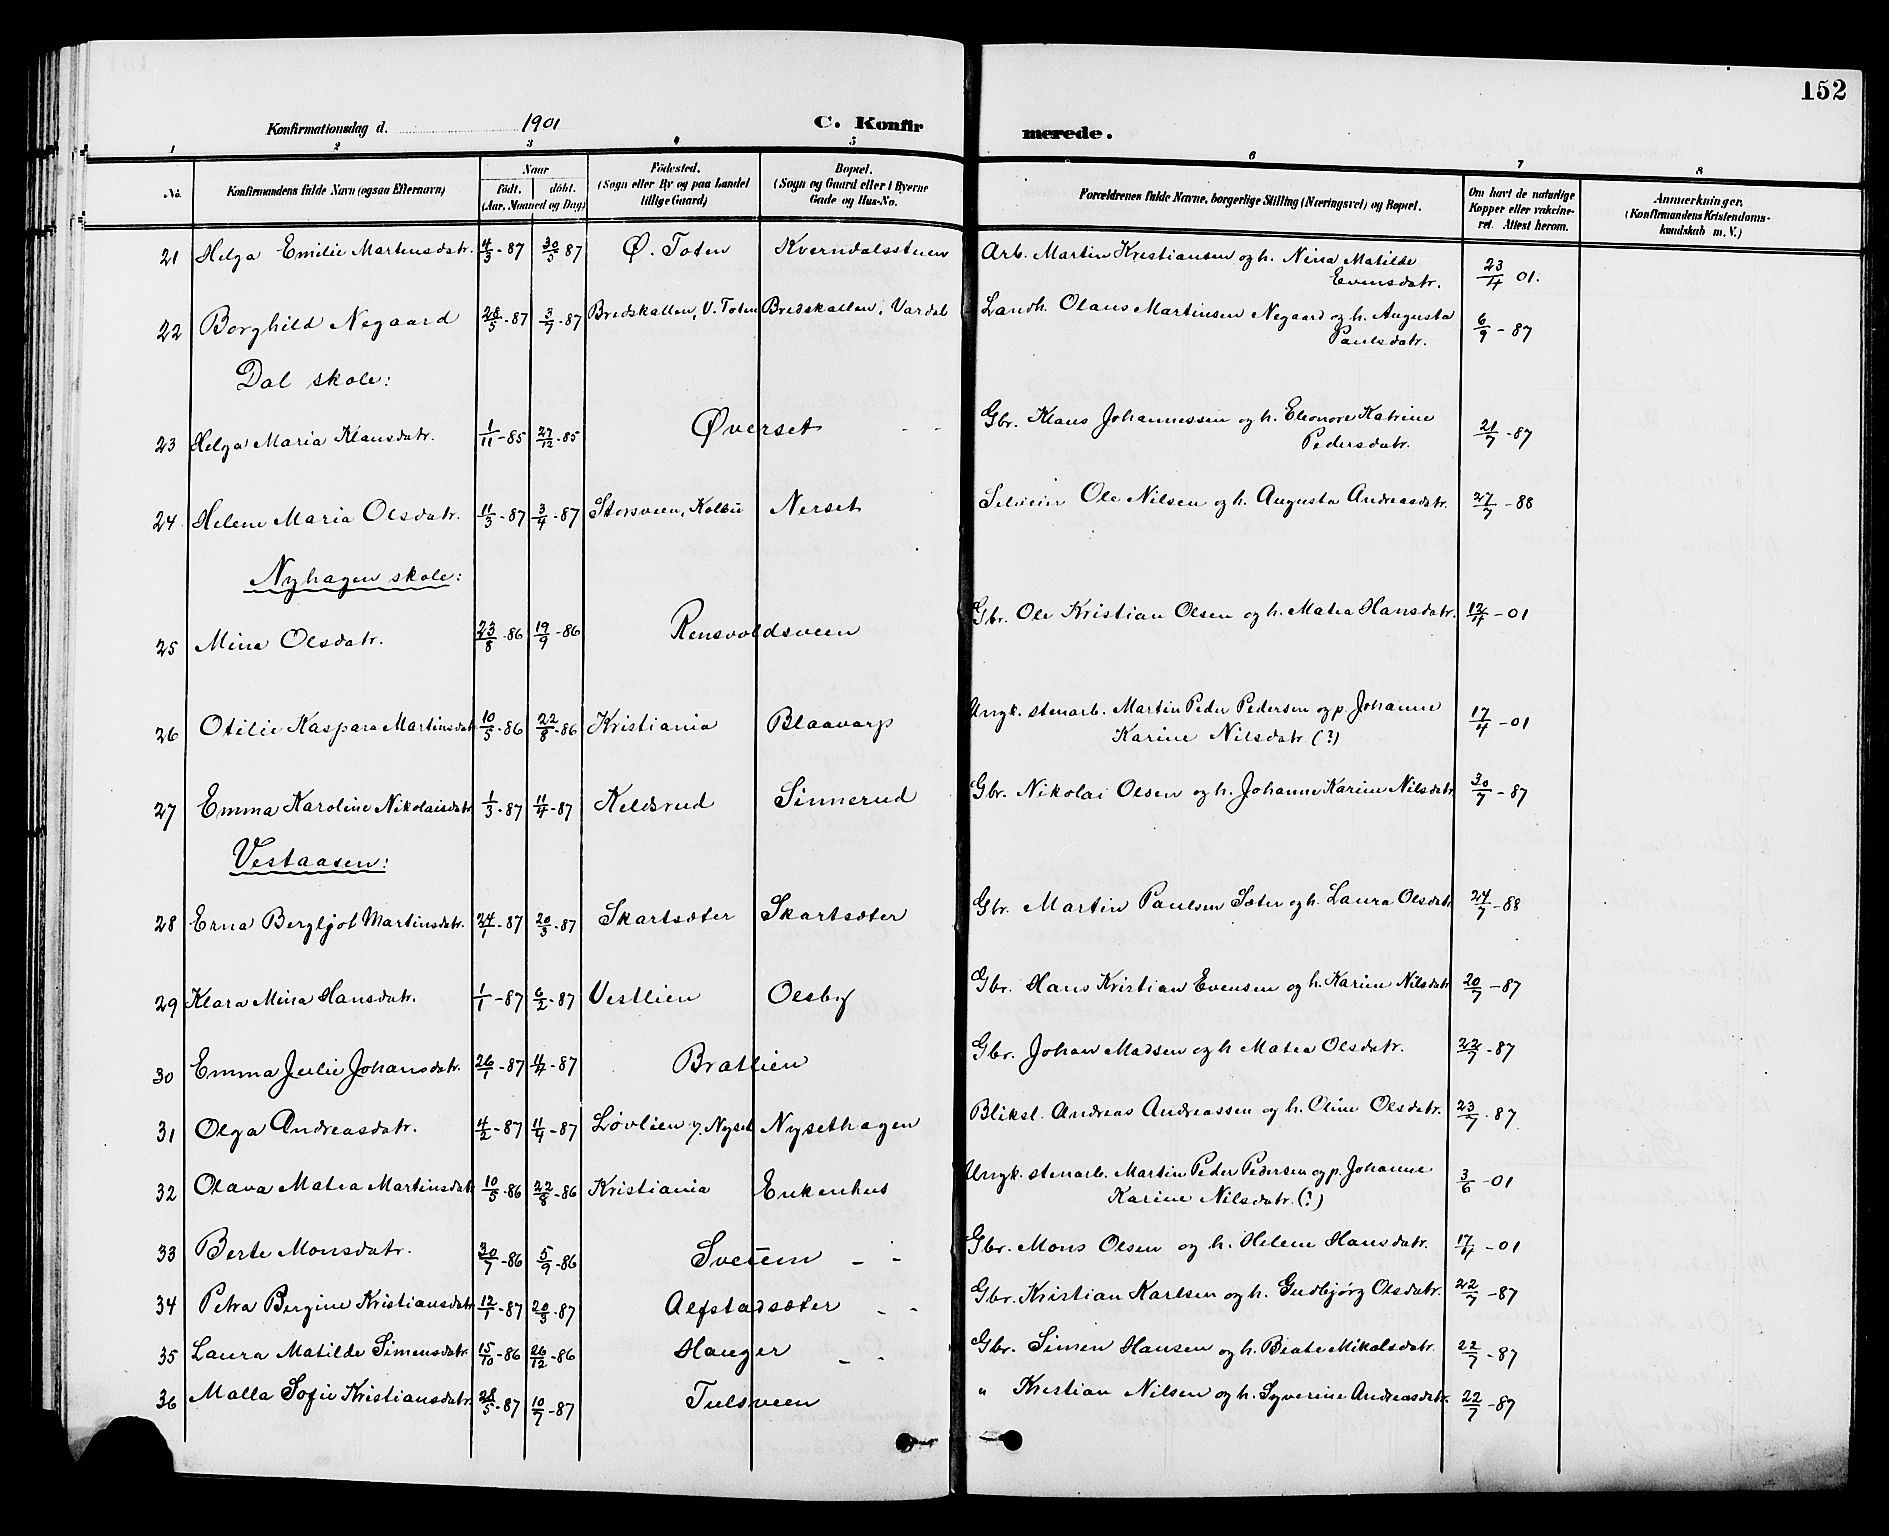 152
Konfirmationsdag d. 1901 C. Konfirmerede.
1 2 3 4 5 6 7 8
No. Konfirmandens fulde Navn (ogsaa Efternavn) Naar födt. döbt. (Aar, Maaned og Dag) Födested. (Sogn eller By og paa Landet tillige Gaard) Bopæl. (Sogn og Gaard eller i Byerne Gade og Hus-No. Forældrenes fulde Navne, borgerlige Stilling (Næringsvei) og Bopæl. Om havt de naturlige Kopper eller vakcineret. Attest herom. Anmærkninger. (Konfirmandens Kristendomskundskab m. V.)
21 Helga Emilie Martinsdatr. 4/3-87 30/5 87 Ø. Toten Kverndalsstuen Arb. Martin Kristiansen og h. Nina Matilde Evensdatr. 23/4 01.
22 Borghild Negaard 28/5-87 3/7-87 Bredskallen, V. Toten Bredskallen, Vardal Landh. Olaus Martinsen Negaard og h. Augusta Paulsdatr. 6/9-87
Dal skole:
23 Helga Maria Klausdatr. 1/11-85 27/12-85 Øverset Gbr. Klaus Johannessen og h. Eleonore Katrine Pedersdatr. 21/7-87
24 Helene Maria Olsdatr. 11/3-87 3/4-87 Storsveen, Kolbu Nerset Selveier Ole Nilsen og h. Augusta Andreasdatr. 27/7-88
Nyhagen skole:
25 Mina Olsdatr. 23/8-86 19/9-86 Rensvoldsveen Gbr. Ole Kristian Olsen og h. Matea Hansdatr. 12/4-01
26 Otilie Kaspara Martinsdatr 10/5-86 22/8-86 Kristiania Blaavarp Ungk. stenarb. Martin Peder Pedersen og p. Johanne Karine Nilsdatr (?) 17/4-01
27 Emma Karoline Nikolaisdatr 1/3-87 11/4-87 Keldsrud Sinnerud Gbr. Nikolai Olsen og h. Johanne Karine Nilsdatr 30/7-87
Vestaasen:
28 Erna Bergljot Martinsdatr. 24/1-87 20/3-87 Skartsæter Skartsæter Gbr. Martin Paulsen Sæter og h. Laura Olsdatr 24/7-88
29 Klara Mina Hansdatr. 1/1-87 6/2-87 Vestlien Olsby Gbr. Hans Kristian Evensen og h. Karine Nilsdatr 20/7-87
30 Emma Julie Johansdatr. 26/1-87 11/4-87 Bratlien Gbr. Johan Madsen og h Matea Olsdatr. 22/7-87
31 Olga Andreasdatr. 4/2-87 11/4-87 Løvlien u. Nyset Nysethagen Bliksl. Andreas Andreassen og h. Oline Olsdatr. 23/7-87
32 Olava Matea Martinsdatr 10/5-86 22/8-86 Kristiania Enkenhus Ungk. stenarb. Martin Peder Pedersen og p. Johanne Karine Nilsdatr. (?) 3/6-01
33 Berte Monsdatr. 30/7-86 5/9-86 Sveum - - Gbr. Mons Olsen og h. Helene Hansdatr. 17/4-01
34 Petra Bergine Kristiansdatr 12/1-87 20/3-87 Alfstadsæter - - Gbr. Kristian Karlsen og h. Gudbjørg Olsdatr. 22/7-87
35 Laura Matilde Simensdatr. 15/10-86 26/12-86 Hauger - - Gbr. Simen Hansen og h. Beate Mikalsdatr. 22/7-87
36 Malla Sofie Kristiansdatr. 28/5-87 10/7-87 Tulsveen " Kristian Nilsen og h. Syverine Andreasdatr. 22/7-87